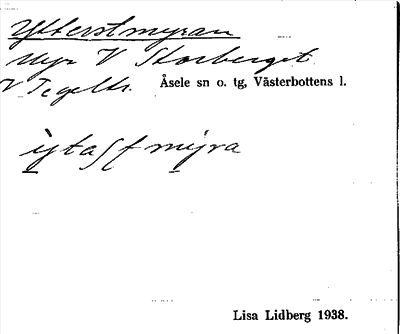 Ytterstmyran
Myr V Storberget
V Tegeltr. Åsele sn o. tg, Västerbottens l.
Lisa Lidberg 1938.